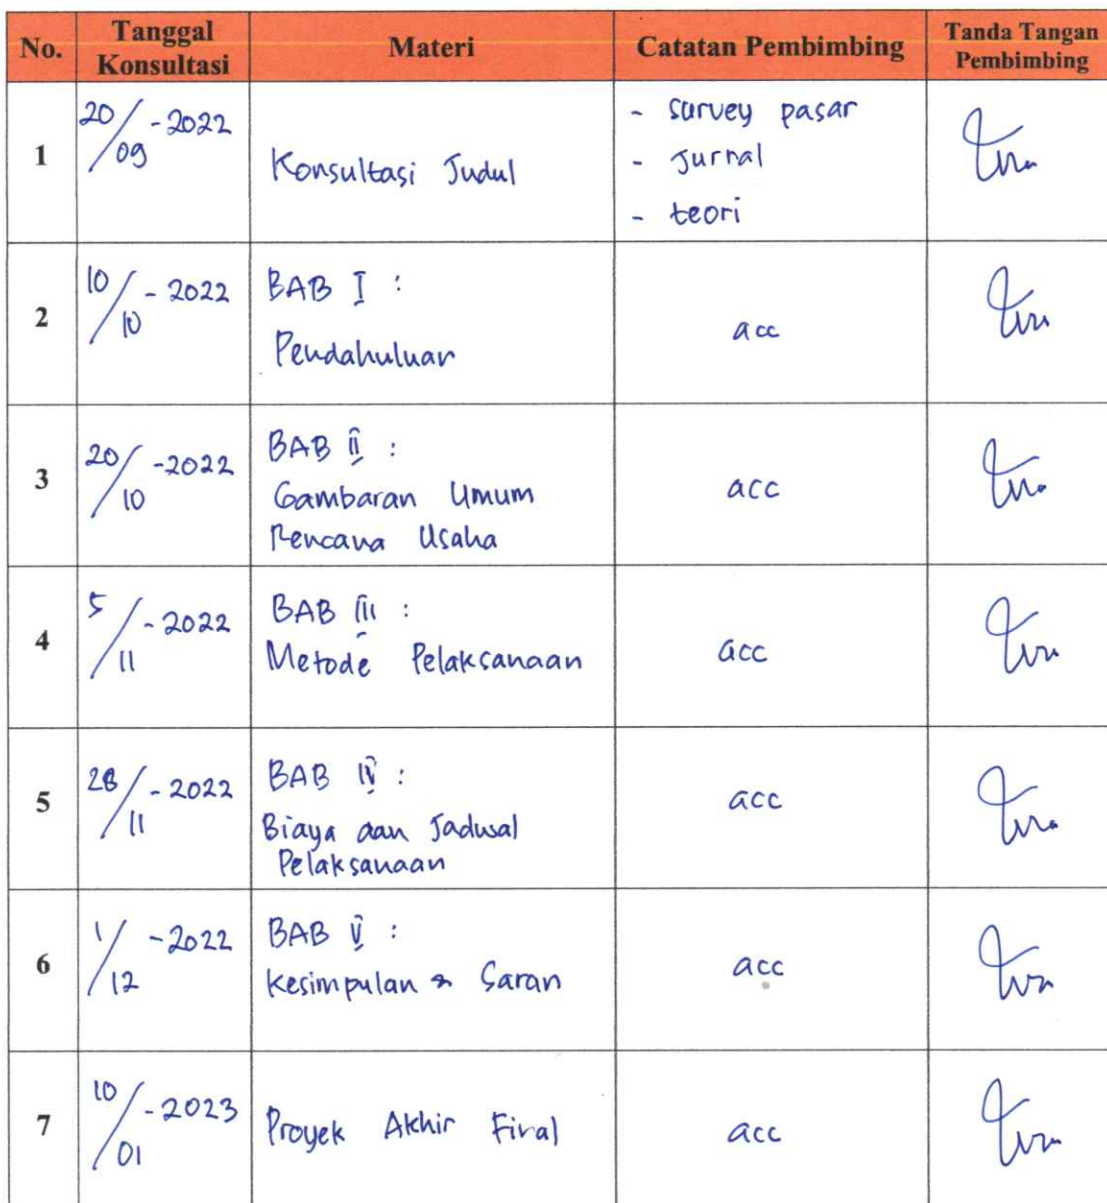 No. Tanggal Konsultasi Materi Catatan Pembimbing Tanda Tangan Pembimbing
1 20/09-2022 Konsultasi Judul - survey pasar
- Jurnal
- teori
2 10/10-2022 BAB I :
Pendahuluan acc
3 20/10-2022 BAB II :
Gambaran Umum acc
Rencana Usaha
4 5/11-2022 BAB III :
Metode Pelaksanaan acc
5 28/11-2022 BAB IV : acc
Biaya dan Jadwal
Pelaksanaan
6 1/12-2022 BAB V :
Kesimpulan & Saran acc
7 10/01-2023 Proyek Akhir Final acc